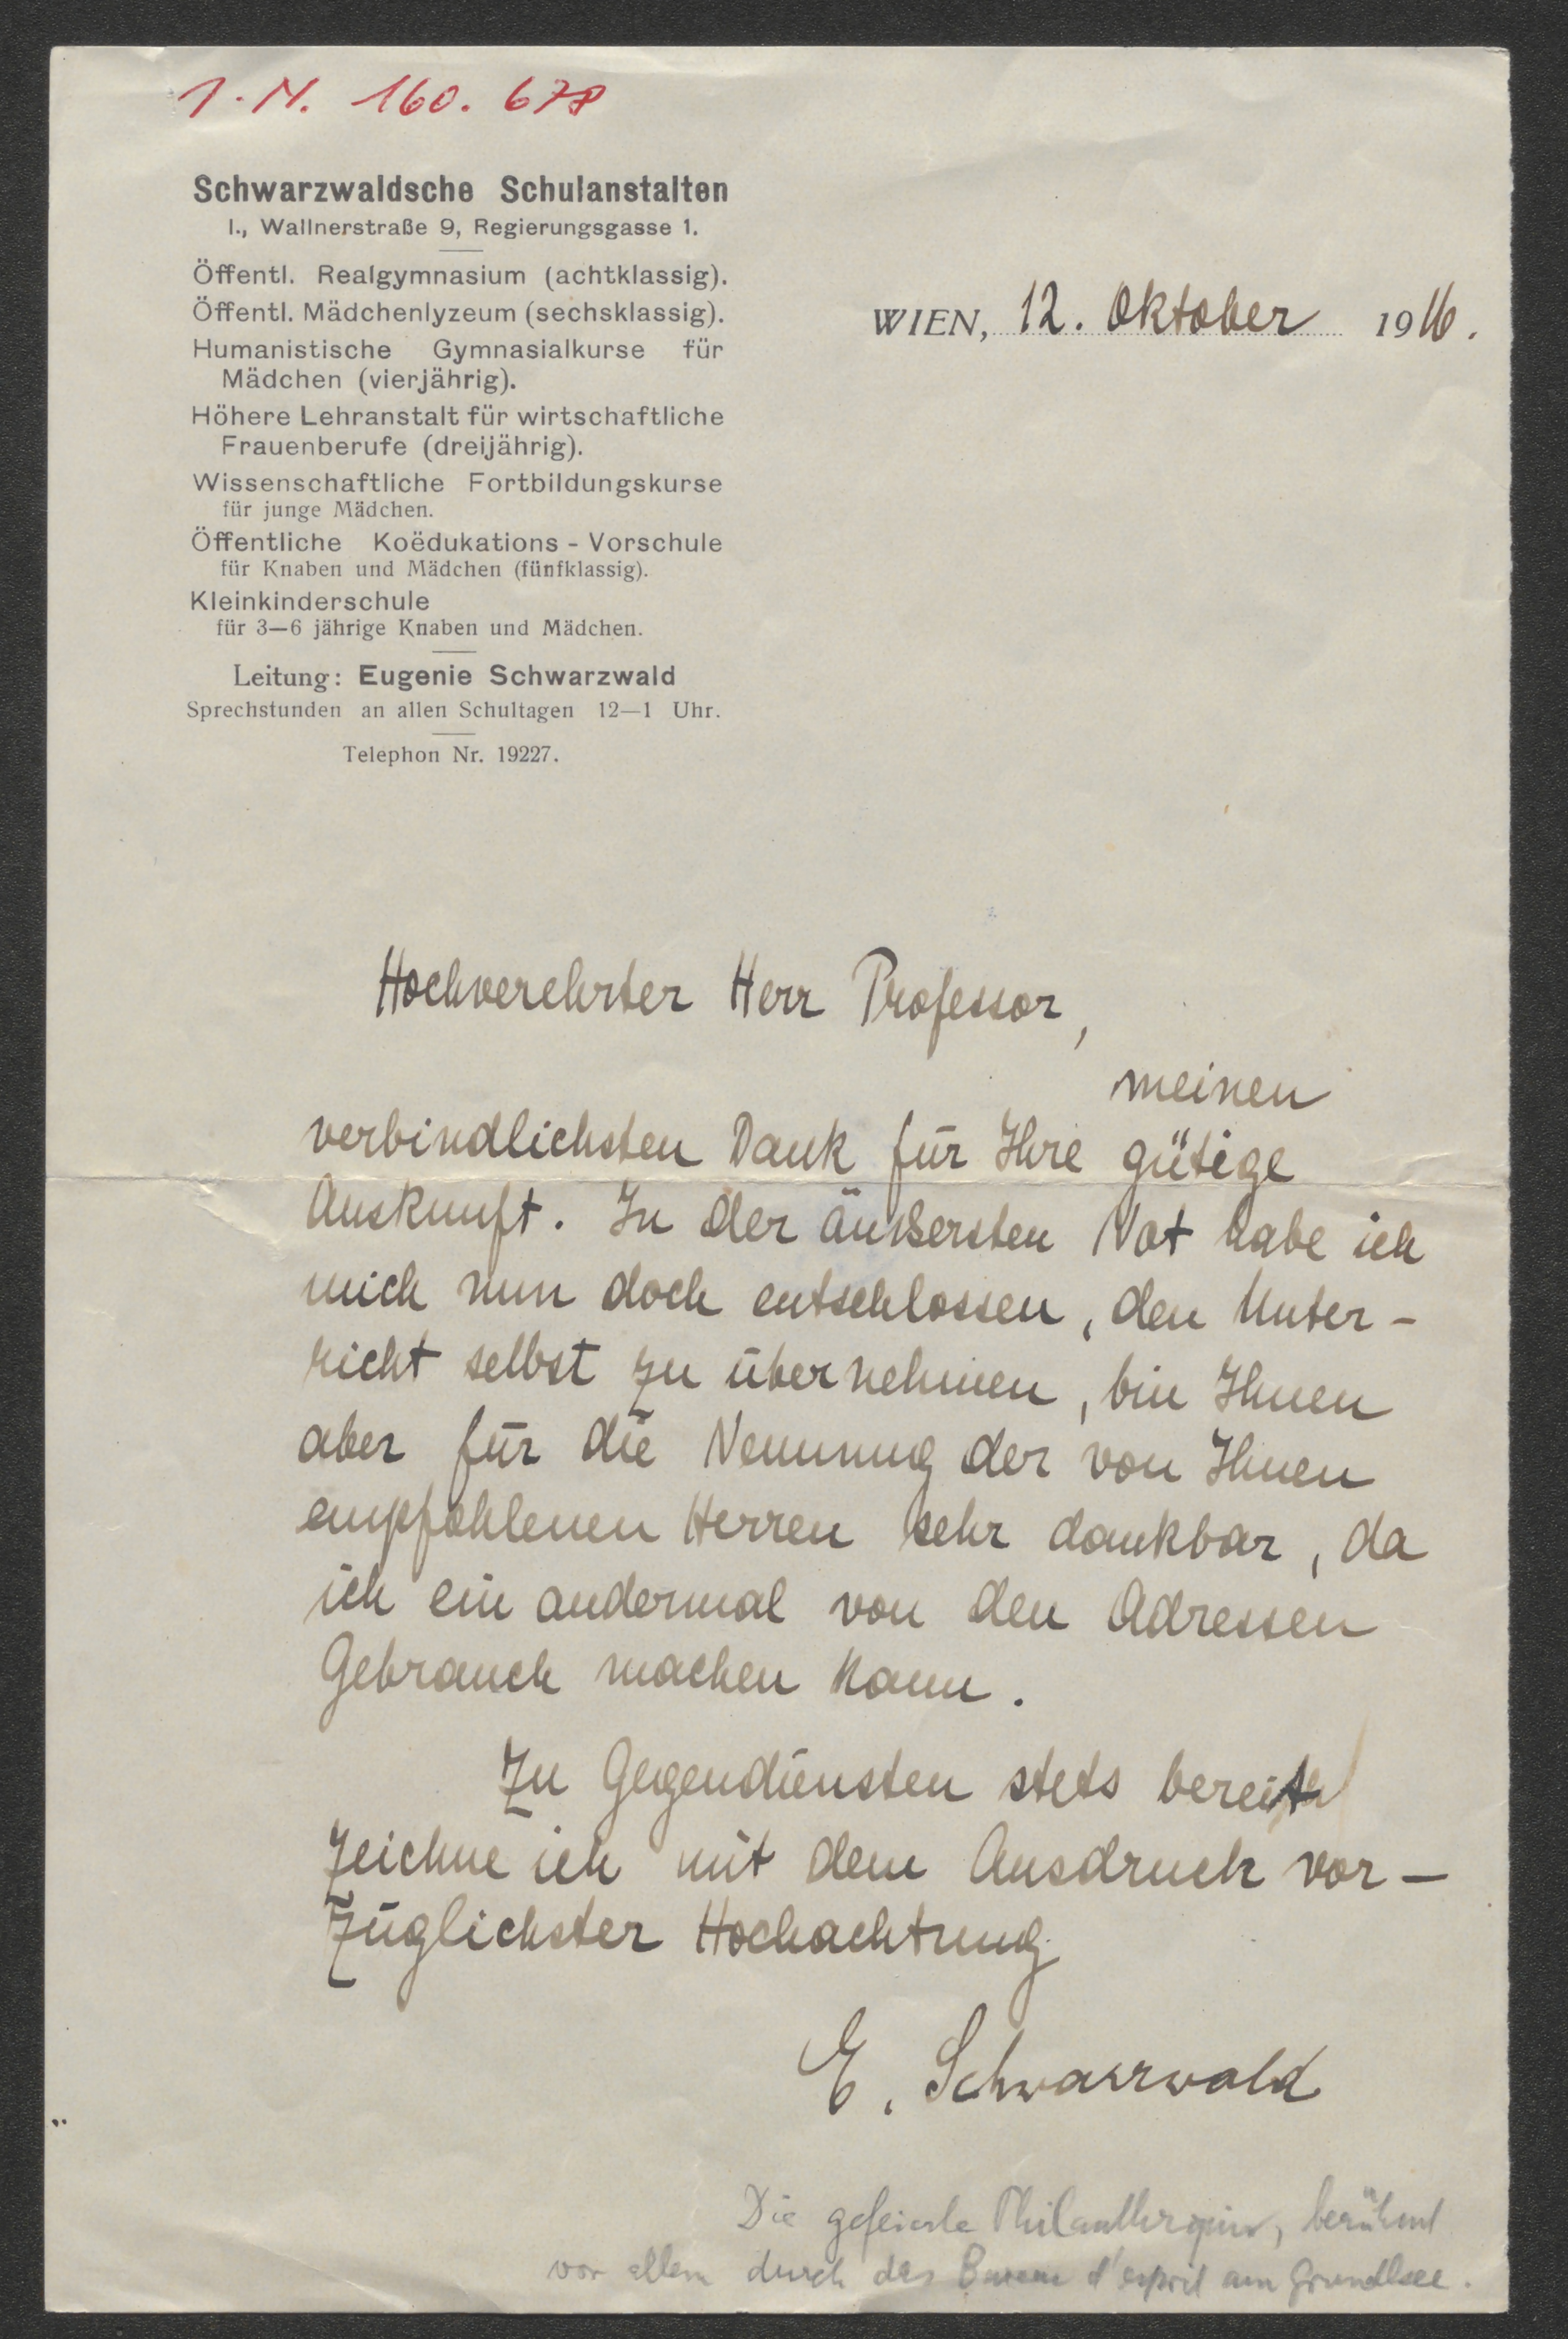 I. N. 160.678
Schwarzwaldsche Schulanstalten
I., Wallnerstraße 9, Regierungsgasse 1.
Öffentl. Realgymnasium (achtklassig).
Öffentl. Mädchenlyzeum (sechsklassig).
Humanistische Gymnasialkurse für
Mädchen (vierjährig).
Höhere Lehranstalt für wirtschaftliche
Frauenberufe (dreijährig).
Wissenschaftliche Fortbildungskurse
für junge Mädchen.
Öffentliche Koëdukations - Vorschule
für Knaben und Mädchen (fünfklassig).
Kleinkinderschule
für 3—6 jährige Knaben und Mädchen.
Leitung: Eugenie Schwarzwald
Sprechstunden an allen Schultagen 12—1 Uhr.
Telephon Nr. 19227.
WIEN, 12. Oktober 1916.
Hochverehrter Herr Professor,
meinen
verbindlichsten Dank für Ihre gütige
Auskunft. In der äußersten Not habe ich
mich nun doch entschlossen, den Unter-
richt selbst zu übernehmen, bin Ihnen
aber für die Nennung der von Ihnen
empfohlenen Herren sehr dankbar, da
ich ein andermal von den Adressen
Gebrauch machen kann.
Zu Gegendiensten stets bereit
zeichne ich mit dem Ausdruck vor-
züglichster Hochachtung
E. Schwarzwald
Die gefeierte Philanthropin, berühmt
vor allem durch das Bureau d'esprit am Grundlsee.